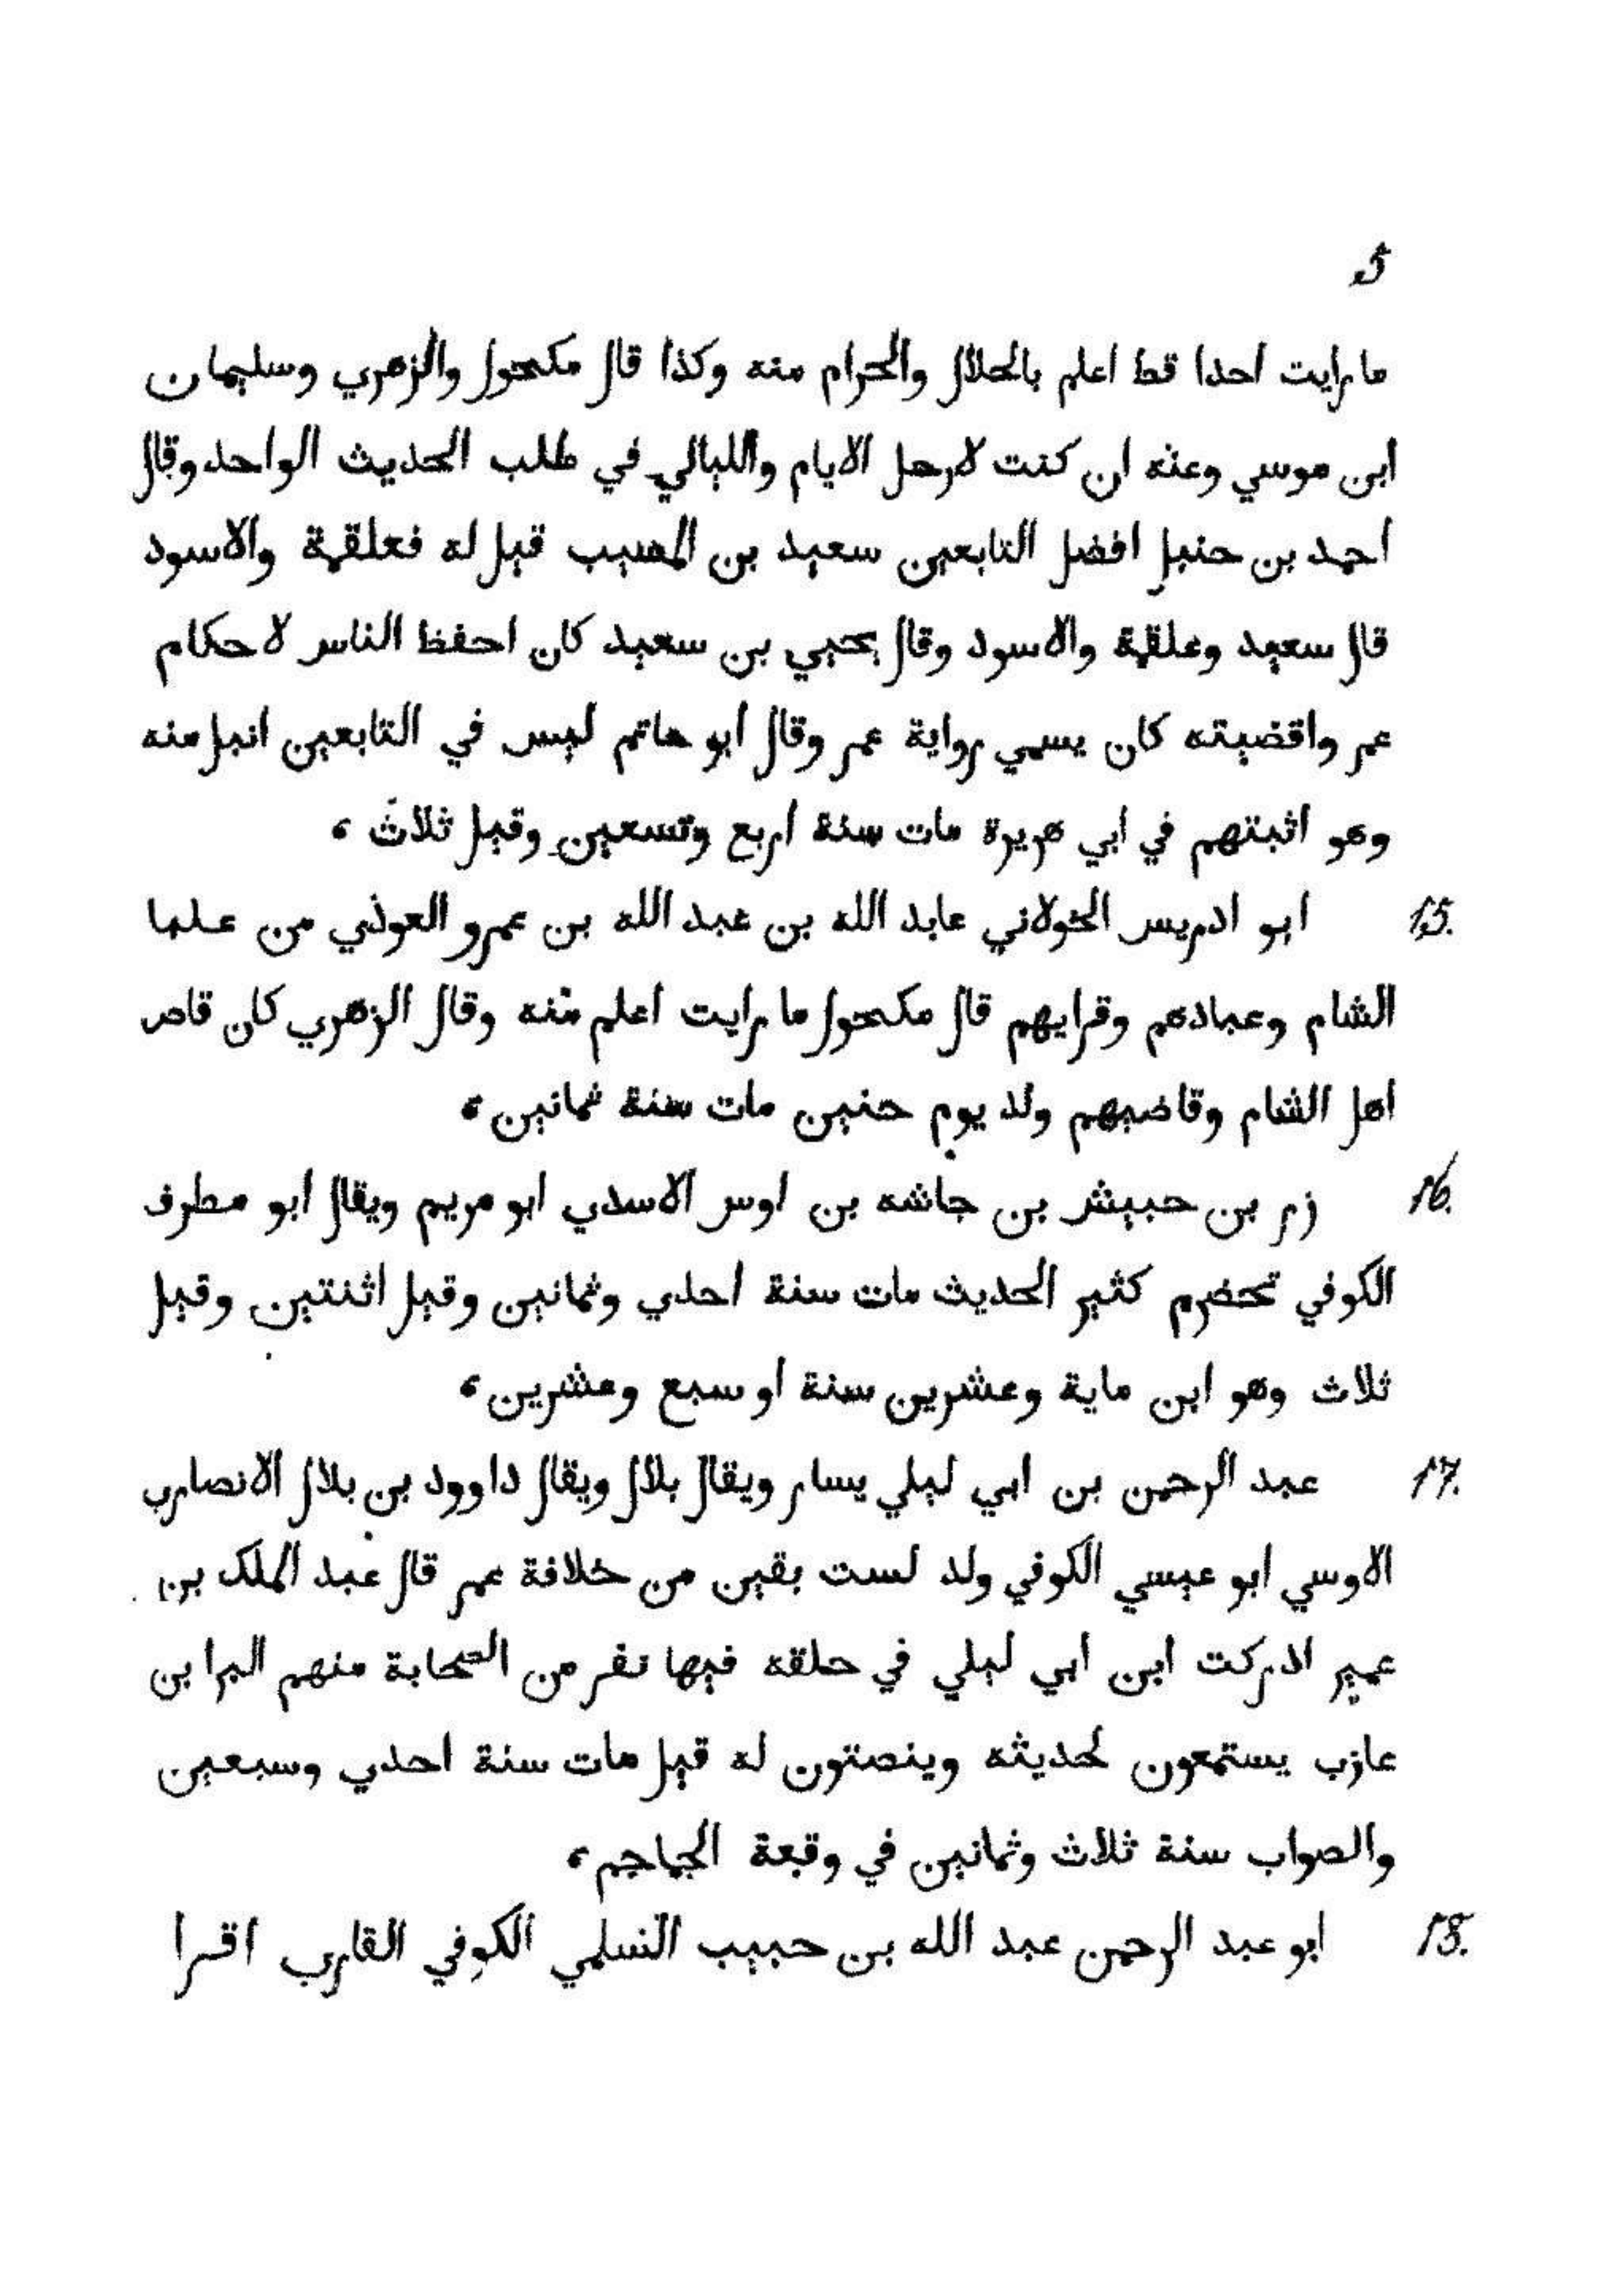 5
ما رايت احدا قط اعلم بالحلال والحرام منه وكذا قال مكحول والزهري وسليمان
ابن موسي وعنه ان كنت لارحل الايام والليالي في طلب الحديث الواحد وقال
احمد بن حنبل افضل التابعين سعيد بن المسيب قيل له فعلقمة والاسود
قال سعيد وعلقمة والاسود وقال يحيي بن سعيد كان احفظ الناس لاحكام
عمر واقضيته كان يسمي رواية عمر وقال ابو حاتم ليس في التابعين انبل منه
وهو اثبتهم في ابي هريرة مات سنة اربع وتسعين وقيل ثلاث ،
15. ابو ادريس الخولاني عايد الله بن عبد الله بن عمرو العوذي من علما
الشام وعبادهم وقرايهم قال مكحول ما رايت اعلم منه وقال الزهري كان قاص
اهل الشام وقاضيهم ولد يوم حنين مات سنة ثمانين ،
16. زر بن حبيش بن حاشه بن اوس الاسدي ابو مريم ويقال ابو مطرف
الكوفي مخضرم كثير الحديث مات سنة احدي وثمانين وقيل اثنتين وقيل
ثلاث وهو ابن ماية وعشرين سنة او سبع وعشرين ،
17. عبد الرحمن بن ابي ليلي يسار ويقال بلال ويقال داوود بن بلال الانصاري
الاوسي ابو عيسي الكوفي ولد لست بقين من خلافة عمر قال عبد الملك بن
عمير ادركت ابن ابي ليلي في حلقه فيها نفر من الصحابة منهم البرا بن
عازب يستمعون لحديثه وينصتون له قيل مات سنة احدي وسبعين
والصواب سنة ثلاث وثمانين في وقعة الجماجم ،
18. ابو عبد الرحمن عبد الله بن حبيب السلمي الكوفي القاري اقرا